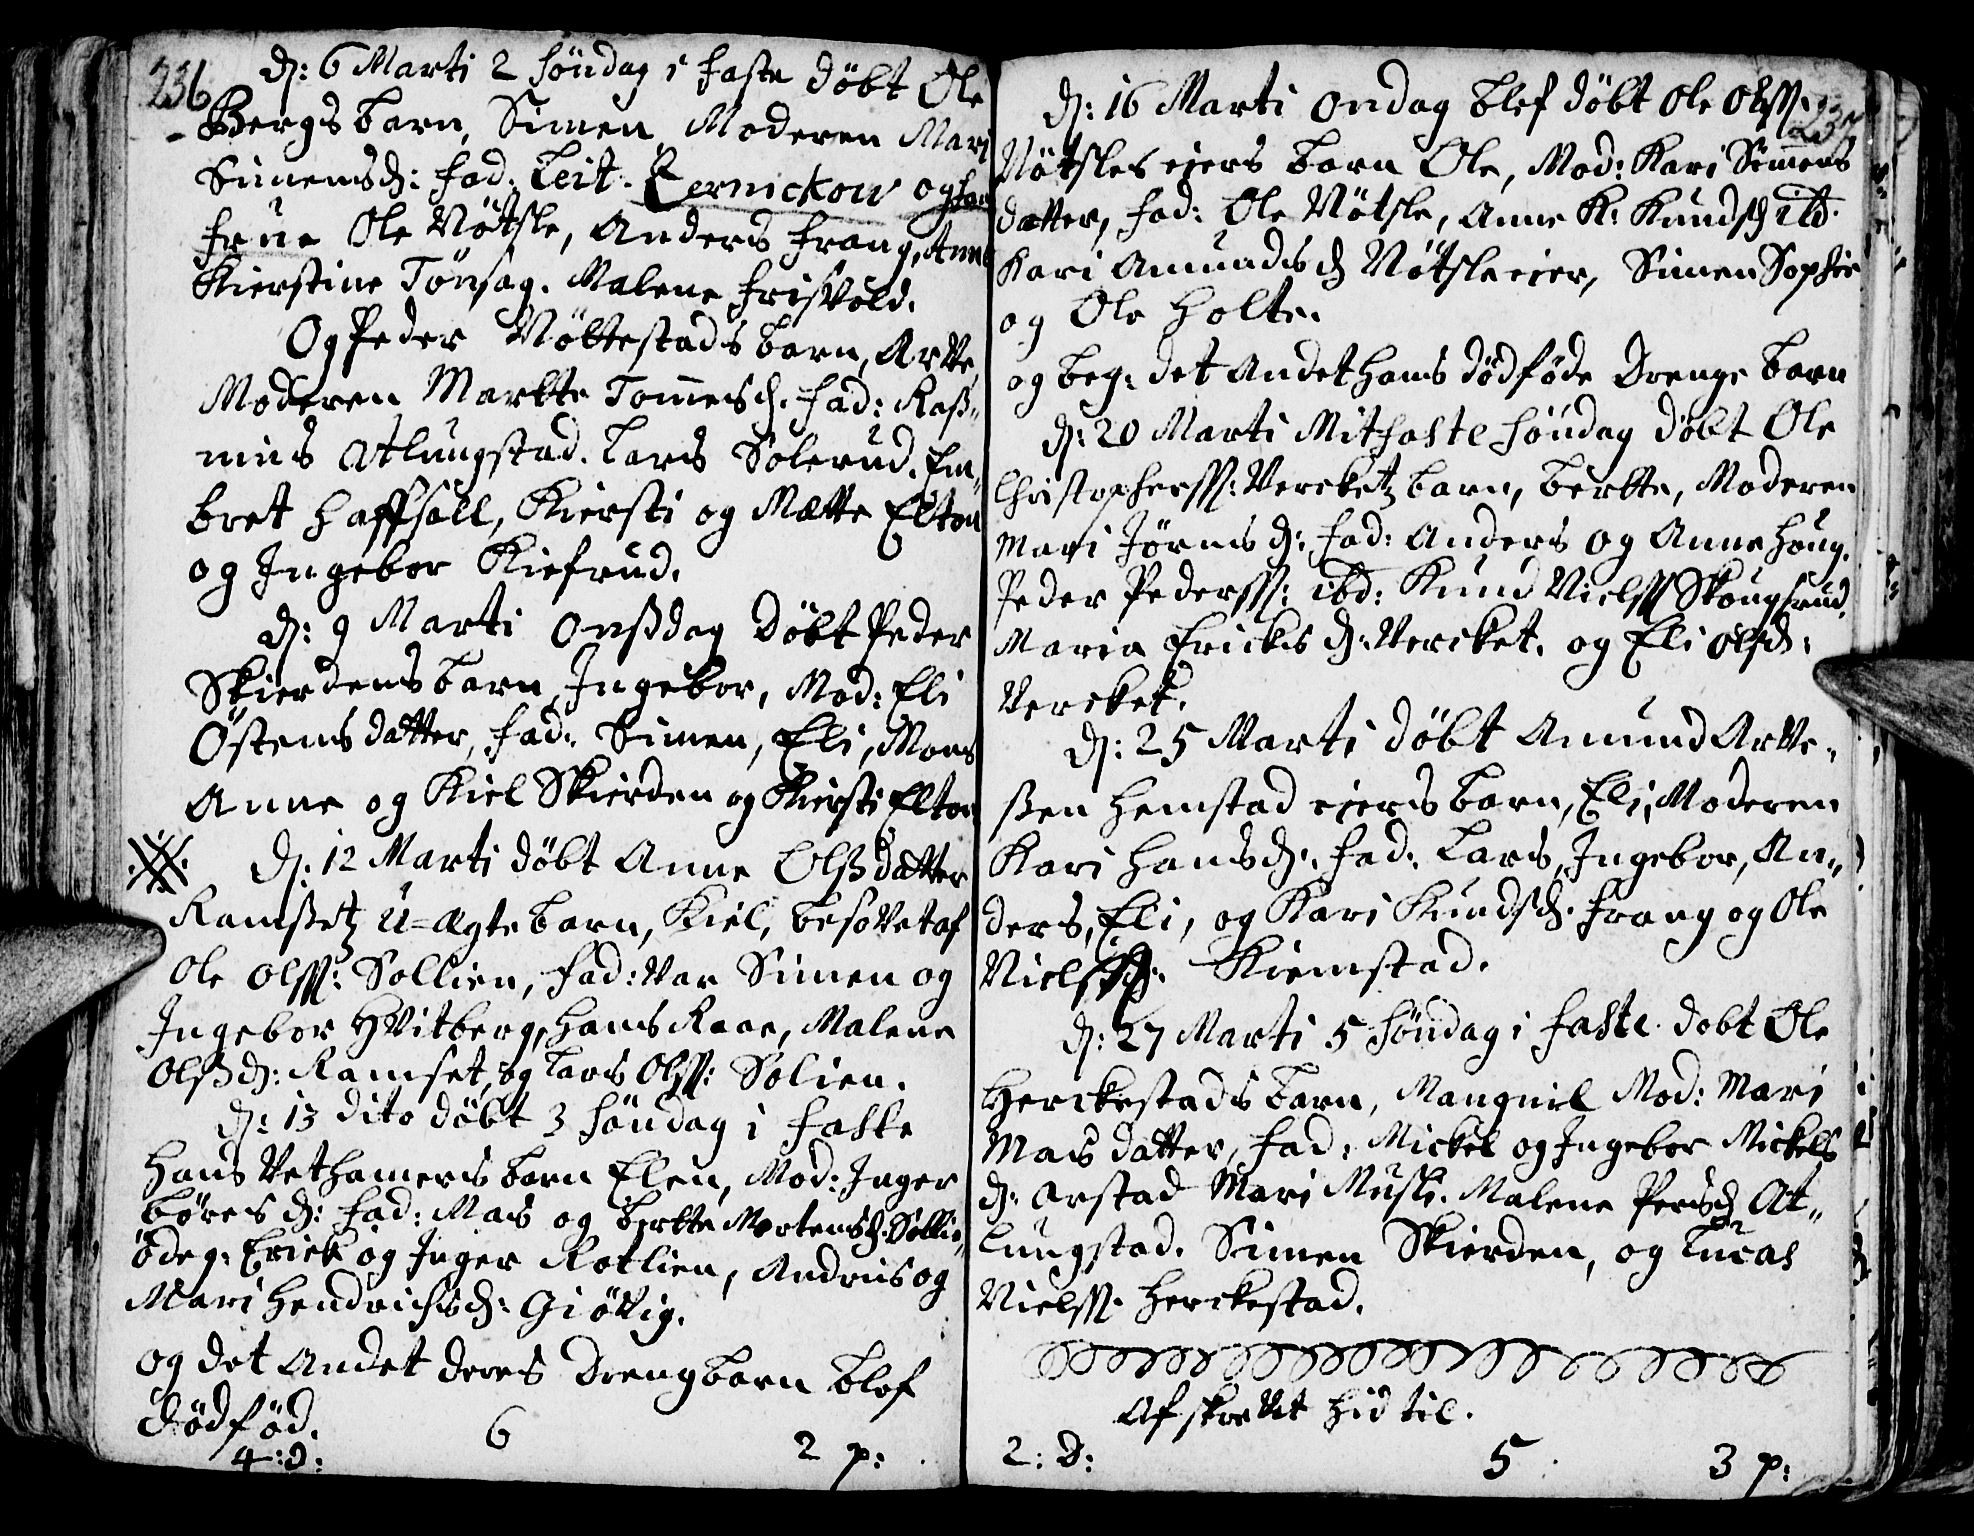 236
D: 6 Marti 2 Söndag i faste döbt Ole
Bergs barn, Simen, Moderen Mari
Simensd: fad. Leit. Zernickow og hans
frue Ole Nötsle, Anders frang, Anne
Kierstine Tönsag. Malene frisvold.
Og Peder Nöttestads barn, Arve,
Moderen Martte Tom̄esd. fad: Raß-
mus Atlungstad. Lars Solerud. Em-
bret haffsall, Kiersti og Mætte Elton
og Ingebor Kiefrud.
D: 9 Marti Onßdag döbt Peder
Skierdens barn, Ingebor, Mod: Eli
Östensdatter, fad: Simen, Eli, Mons
Anne og Kiel Skierden og Kiersti Elton
D: 12 Marti döbt Anne Olßdatter
Ramsetz U-ægte barn, Kiel, besovet af
Ole Olss: Sollien, fad: var Simen og
Ingebor Hvitberg, hans Raae, Malene
Olßd: Ramset, og Lars Olss: Solien.
D: 13 dito döbt 3 Söndag i faste
Hans Vethamers barn Elen, Mod: Inger
Böresd: fad: Mads og bertte Mortensd. Sollie,
ödeg: Erick og Inger Rotlien, Andris og
Mari Hendrichsd: Giövig.
og det Andet deres drengbarn blef
dödföd.
4: d: 6 2 p:
235
D: 16 Marti Ondag blef döbt Ole Olss.
Nötsles eiers barn Ole, Mod: Kari Simens
datter, fad: Ole Nötsle, Anne K. Kundsd ibd.
Kari Amundsd Nötsle eier, Simen Sophie
og Ole Holte.
og beg: det Andet hans dödföde drenge barn
D: 20 Marti Mitfaste Söndag döbt Ole
Christophersss: Verketz barn, bertte, Moderen
Mari Jörnsd: fad: Anders og Anne houg.
Peder Pederss: ibd: Kund Nielss Skougsrud.
Maria Ericksd: Vercket. og Eli Olsd:
Vercket.
D: 25 Marti döbt Amund Arve-
ßen Hemstad eiers barn, Eli, Moderen
Kari Hansd: fad: Lars, Ingebor, An-
ders, Eli, og Kari Kundsd. frang og Ole
Nielss: Kiemstad.
D: 27 Marti 5 Söndag i faste. döbt Ole
Herckestads barn, Mangnil Mod: Mari
Mads datter, fad: Mickel og Ingebor Mickels
d: Arstad Mari Musli. Malene Persd At-
lungstad. Simen Skierden, og Lucas
Nielss. Herckestad.
Af skrevet hid til.
2: d: 5 3 p: